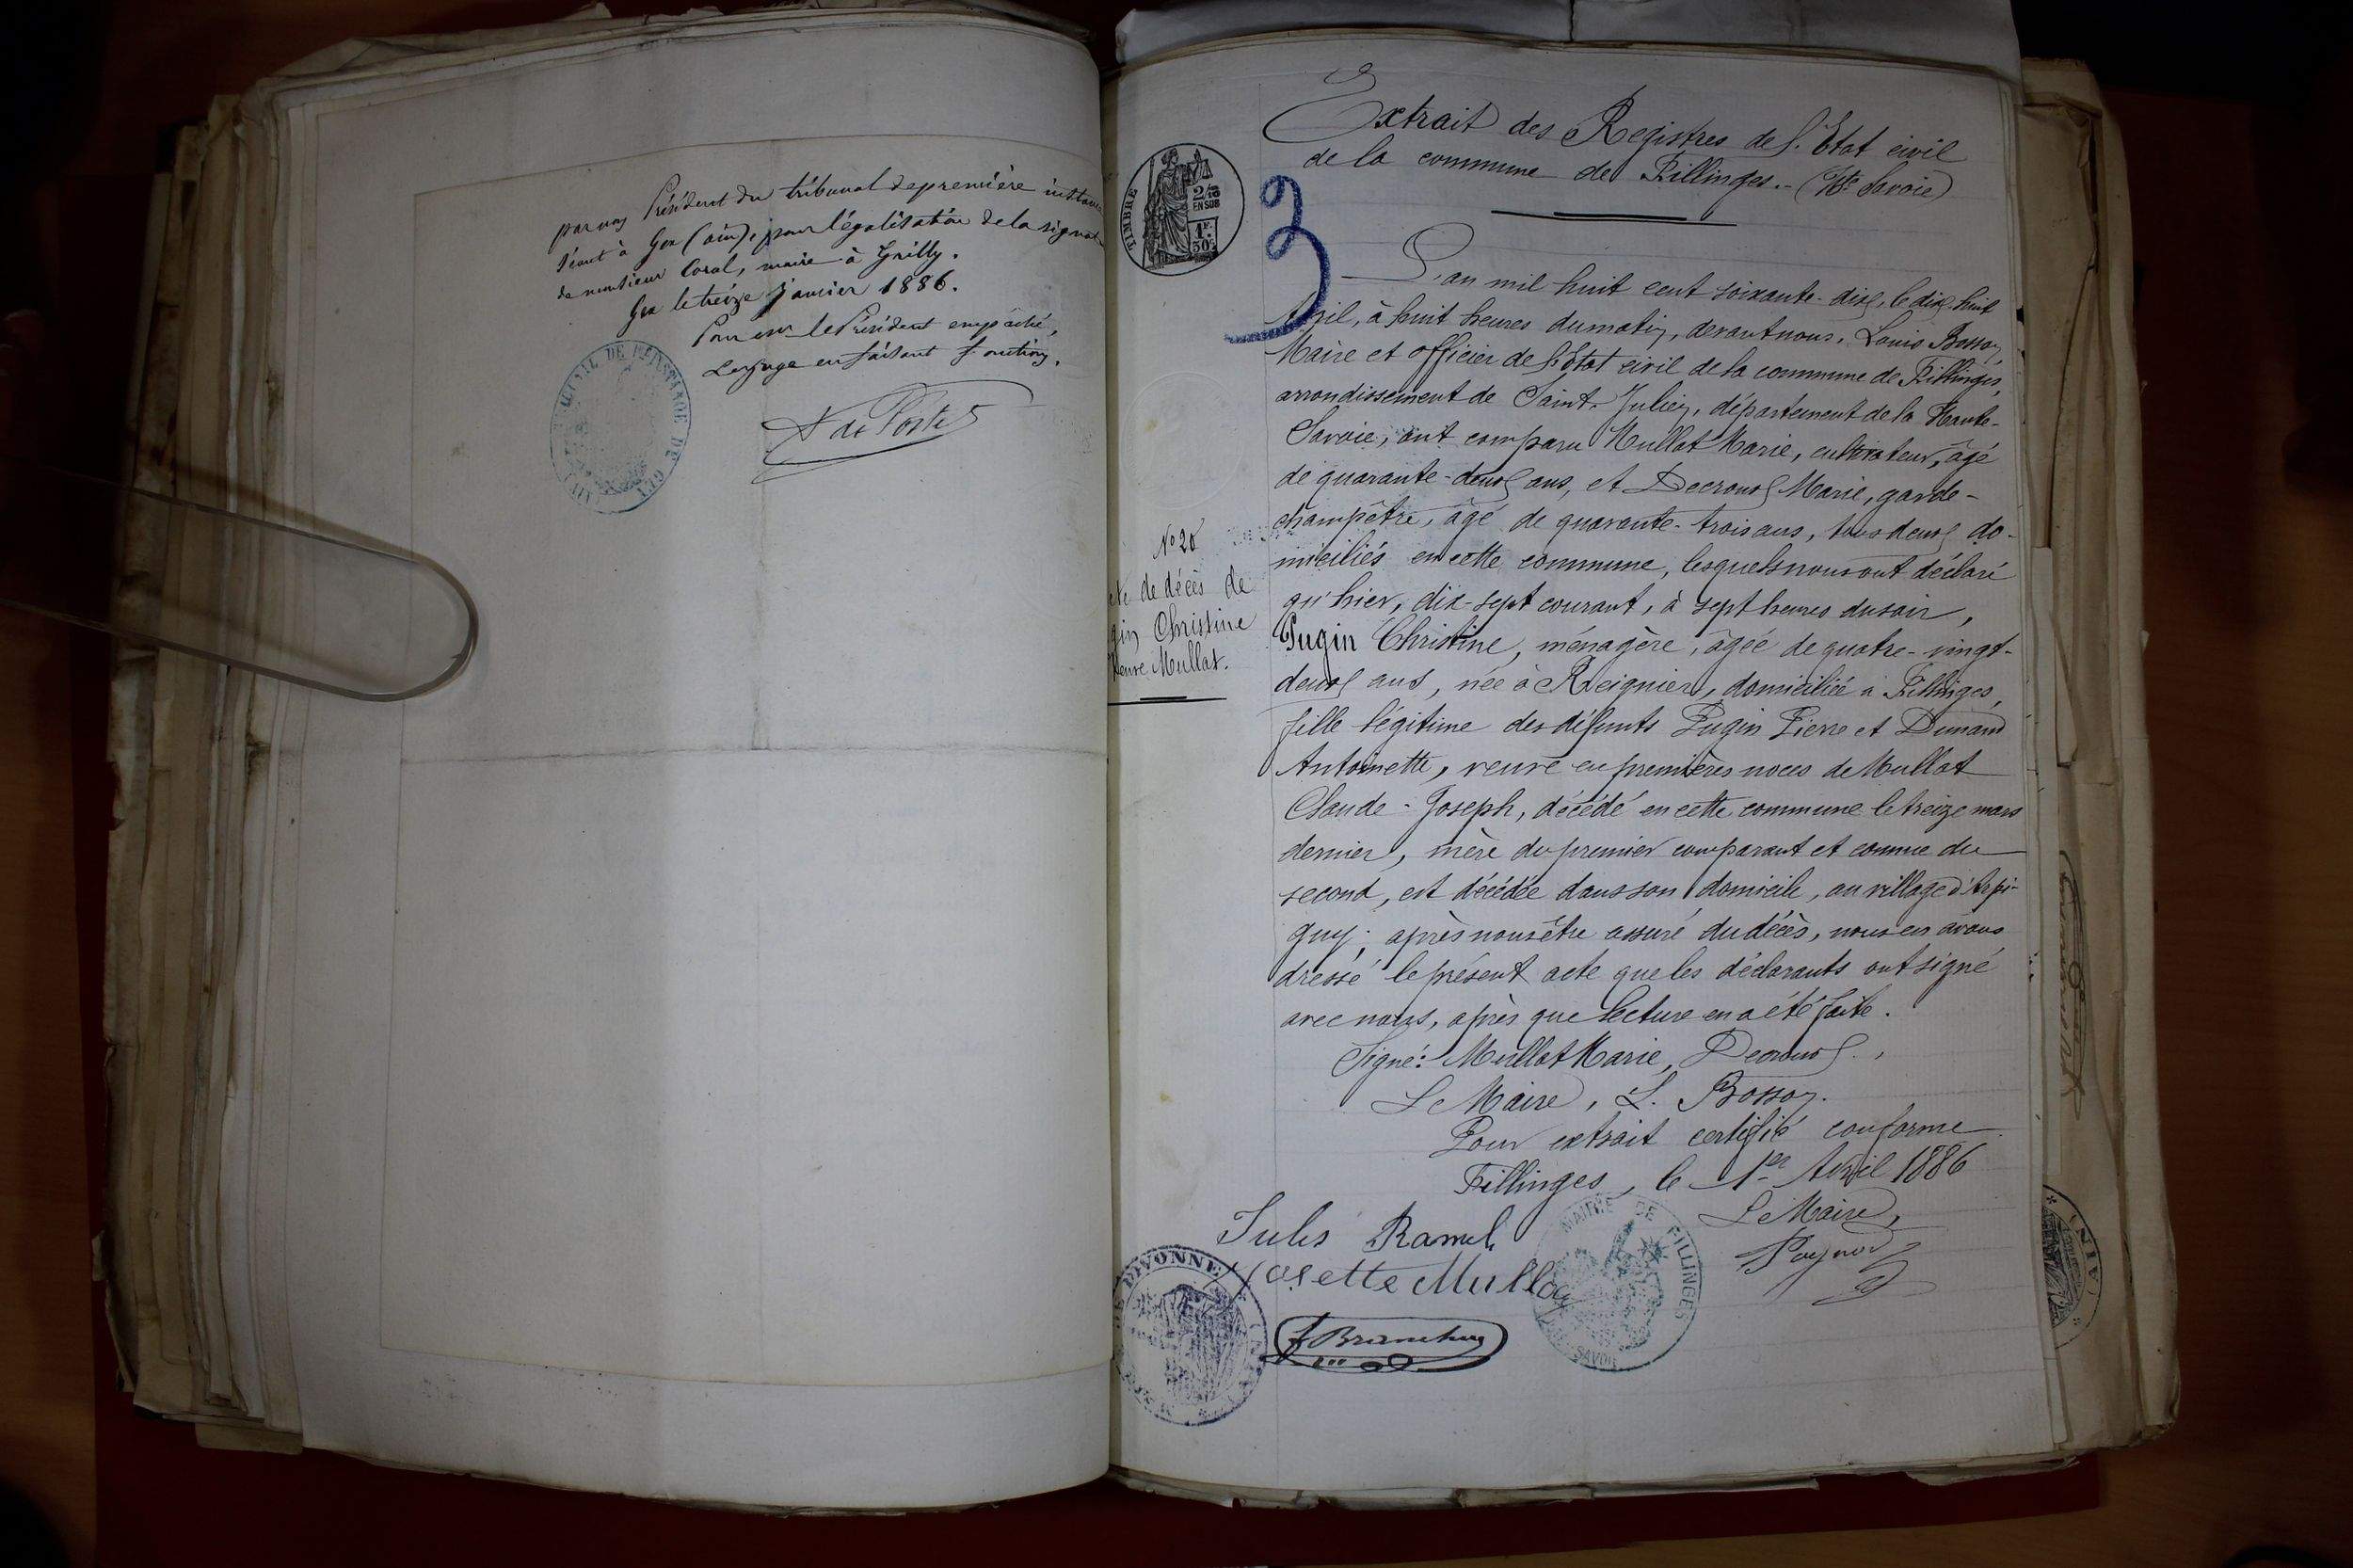 par nous Président du tribunal de première instance
séant à Gex (ain), pour légalisation de la signat
de monsieur Coral, maire à Grilly.
Gex le treize janvier 1886.
Pour mr le Président empêché,
Le juge en faisant fonction,
TRIBUNAL DE 1ère INSTANCE DE GEX
Extrait des Registres de l'Etat civil
de la commune de Fillinges.- (Hte Savoie)
TIMBRE
2/10
EN SUS
1F.
50c.
3
L'an mil huit cent soixante-dix, le dix-huit
Avril, à huit heures du matin, devant nous, Louis Bosson,
Maire et officier de l'état civil de la commune de Fillinges,
arrondissement de Saint-Julien, département de la Haute-
Savoie, ont comparu Mullat Marie, cultivateur, âgé
de quarante-deux ans, et Decroux Marie, garde-
champêtre, âgé de quarante-trois ans, tous deux do-
miciliés en cette commune, lesquels nous ont déclaré
qu'hier, dix-sept courant, à sept heures du soir,
Pugin Christine, ménagère, âgée de quatre-vingt-
deux ans, née à Reignier, domiciliée à Fillinges,
fille légitime des défunts Pugin Pierre et Dunand
Antoinette, veuve en premières noces de Mullat
Claude-Joseph, décédé en cette commune le treize mars
dernier, mère du premier comparant et connue du
second, est décédée dans son domicile, au village d'Arpi-
gny; après nous être assuré du décès, nous en avons
dressé le présent acte que les déclarants ont signé
avec nous, après que lecture en a été faite.
Signé: Mullat Marie, Decroux.,
Le Maire, L. Bosson.
Pour extrait certifié conforme
Fillinges, le 1er Avril 1886
Le Maire,
No 20
cte de décès de
gin Christine
Veuve Mullat.
Jules Ramel
Josette Mullat
MAIRIE DE FILLINGES
SAVOIE
DIVONNE
(AIN)